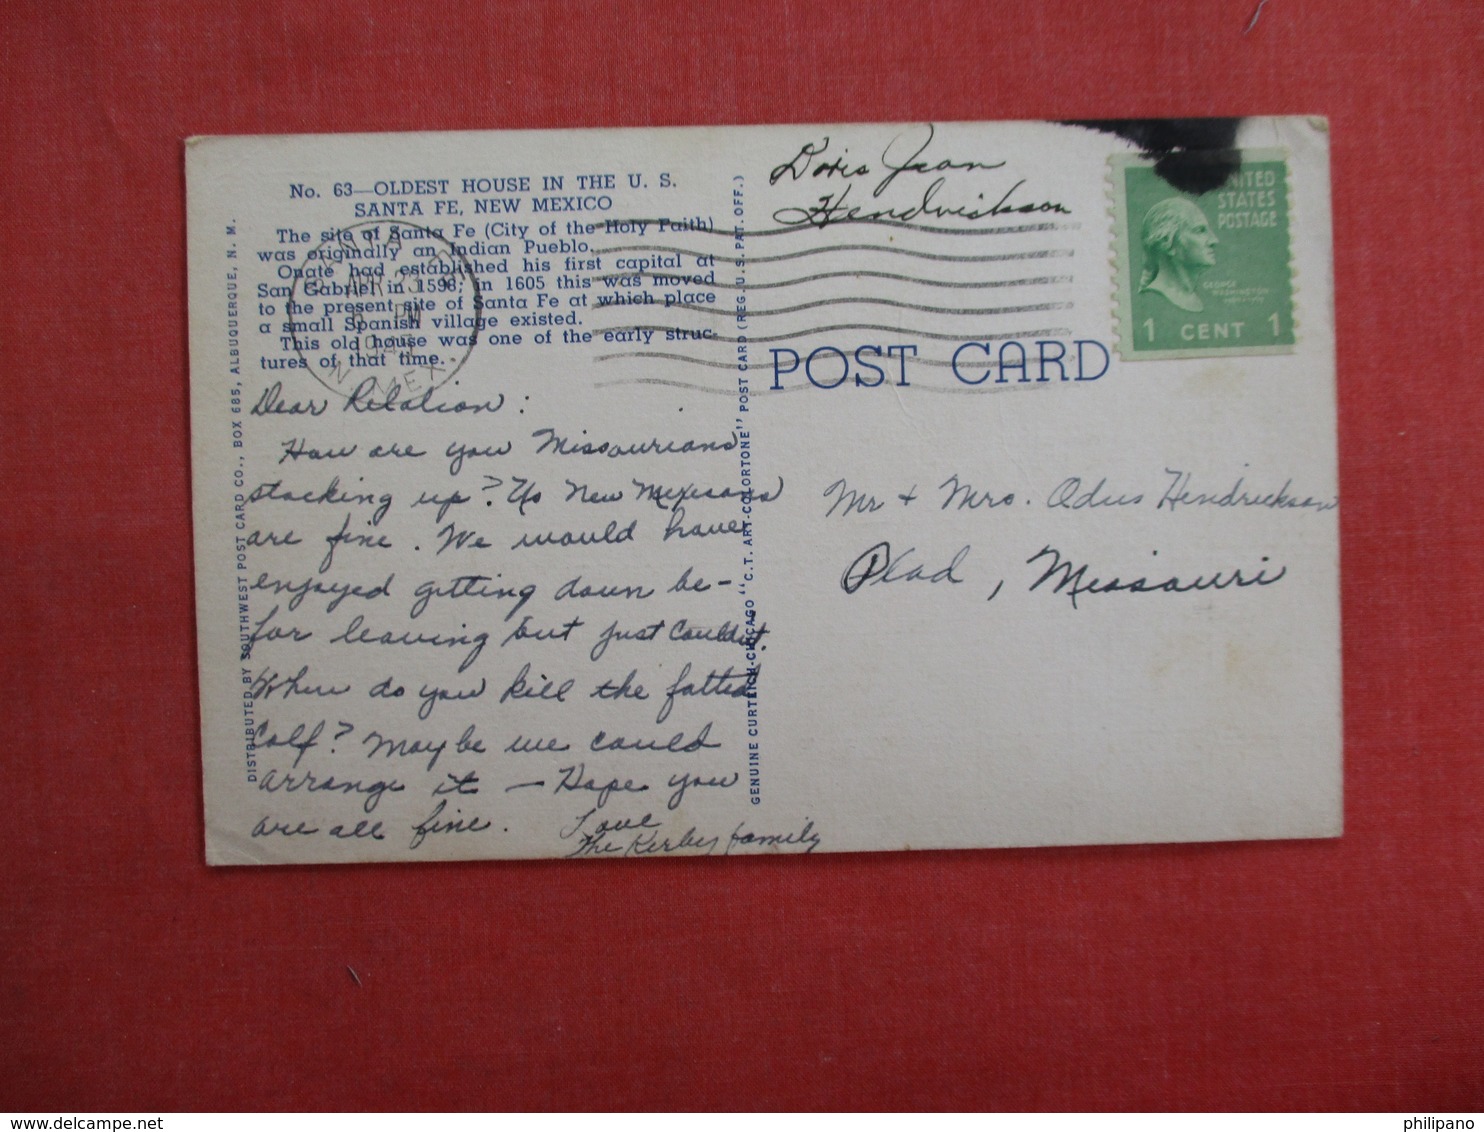 No. 63—OLDEST HOUSE IN THE U. S.
SANTA FE, NEW MEXICO
The site of Santa Fe (City of the Holy Faith)
was originally an Indian Pueblo.
Onate had established his first capital at
San Gabriel in 1598; in 1605 this was moved
to the present site of Santa Fe at which place
a small Spanish village existed.
This old house was one of the early struc-
tures of that time.
SANTA FE
APR 23
PM
N. MEX.
Dear Relation:
How are you Missourians
stacking up? Us New Mexicans
are fine. We would have
enjoyed getting down be-
for leaving but just couldn't.
When do you kill the fatted
calf? Maybe we could
arrange it — Hope you
are all fine. Love
The Kerby family
DISTRIBUTED BY SOUTHWEST POST CARD CO., BOX 685, ALBUQUERQUE, N. M.
GENUINE CURTEICH-CHICAGO "C.T. ART-COLORTONE" POST CARD (REG. U.S. PAT. OFF.)
Doris Jean
Hendrickson
UNITED
STATES
POSTAGE
GEORGE
WASHINGTON
1 CENT 1
POST CARD
Mr + Mrs. Odus Hendrickson
Plad, Missouri
philipano
www.delcampe.net